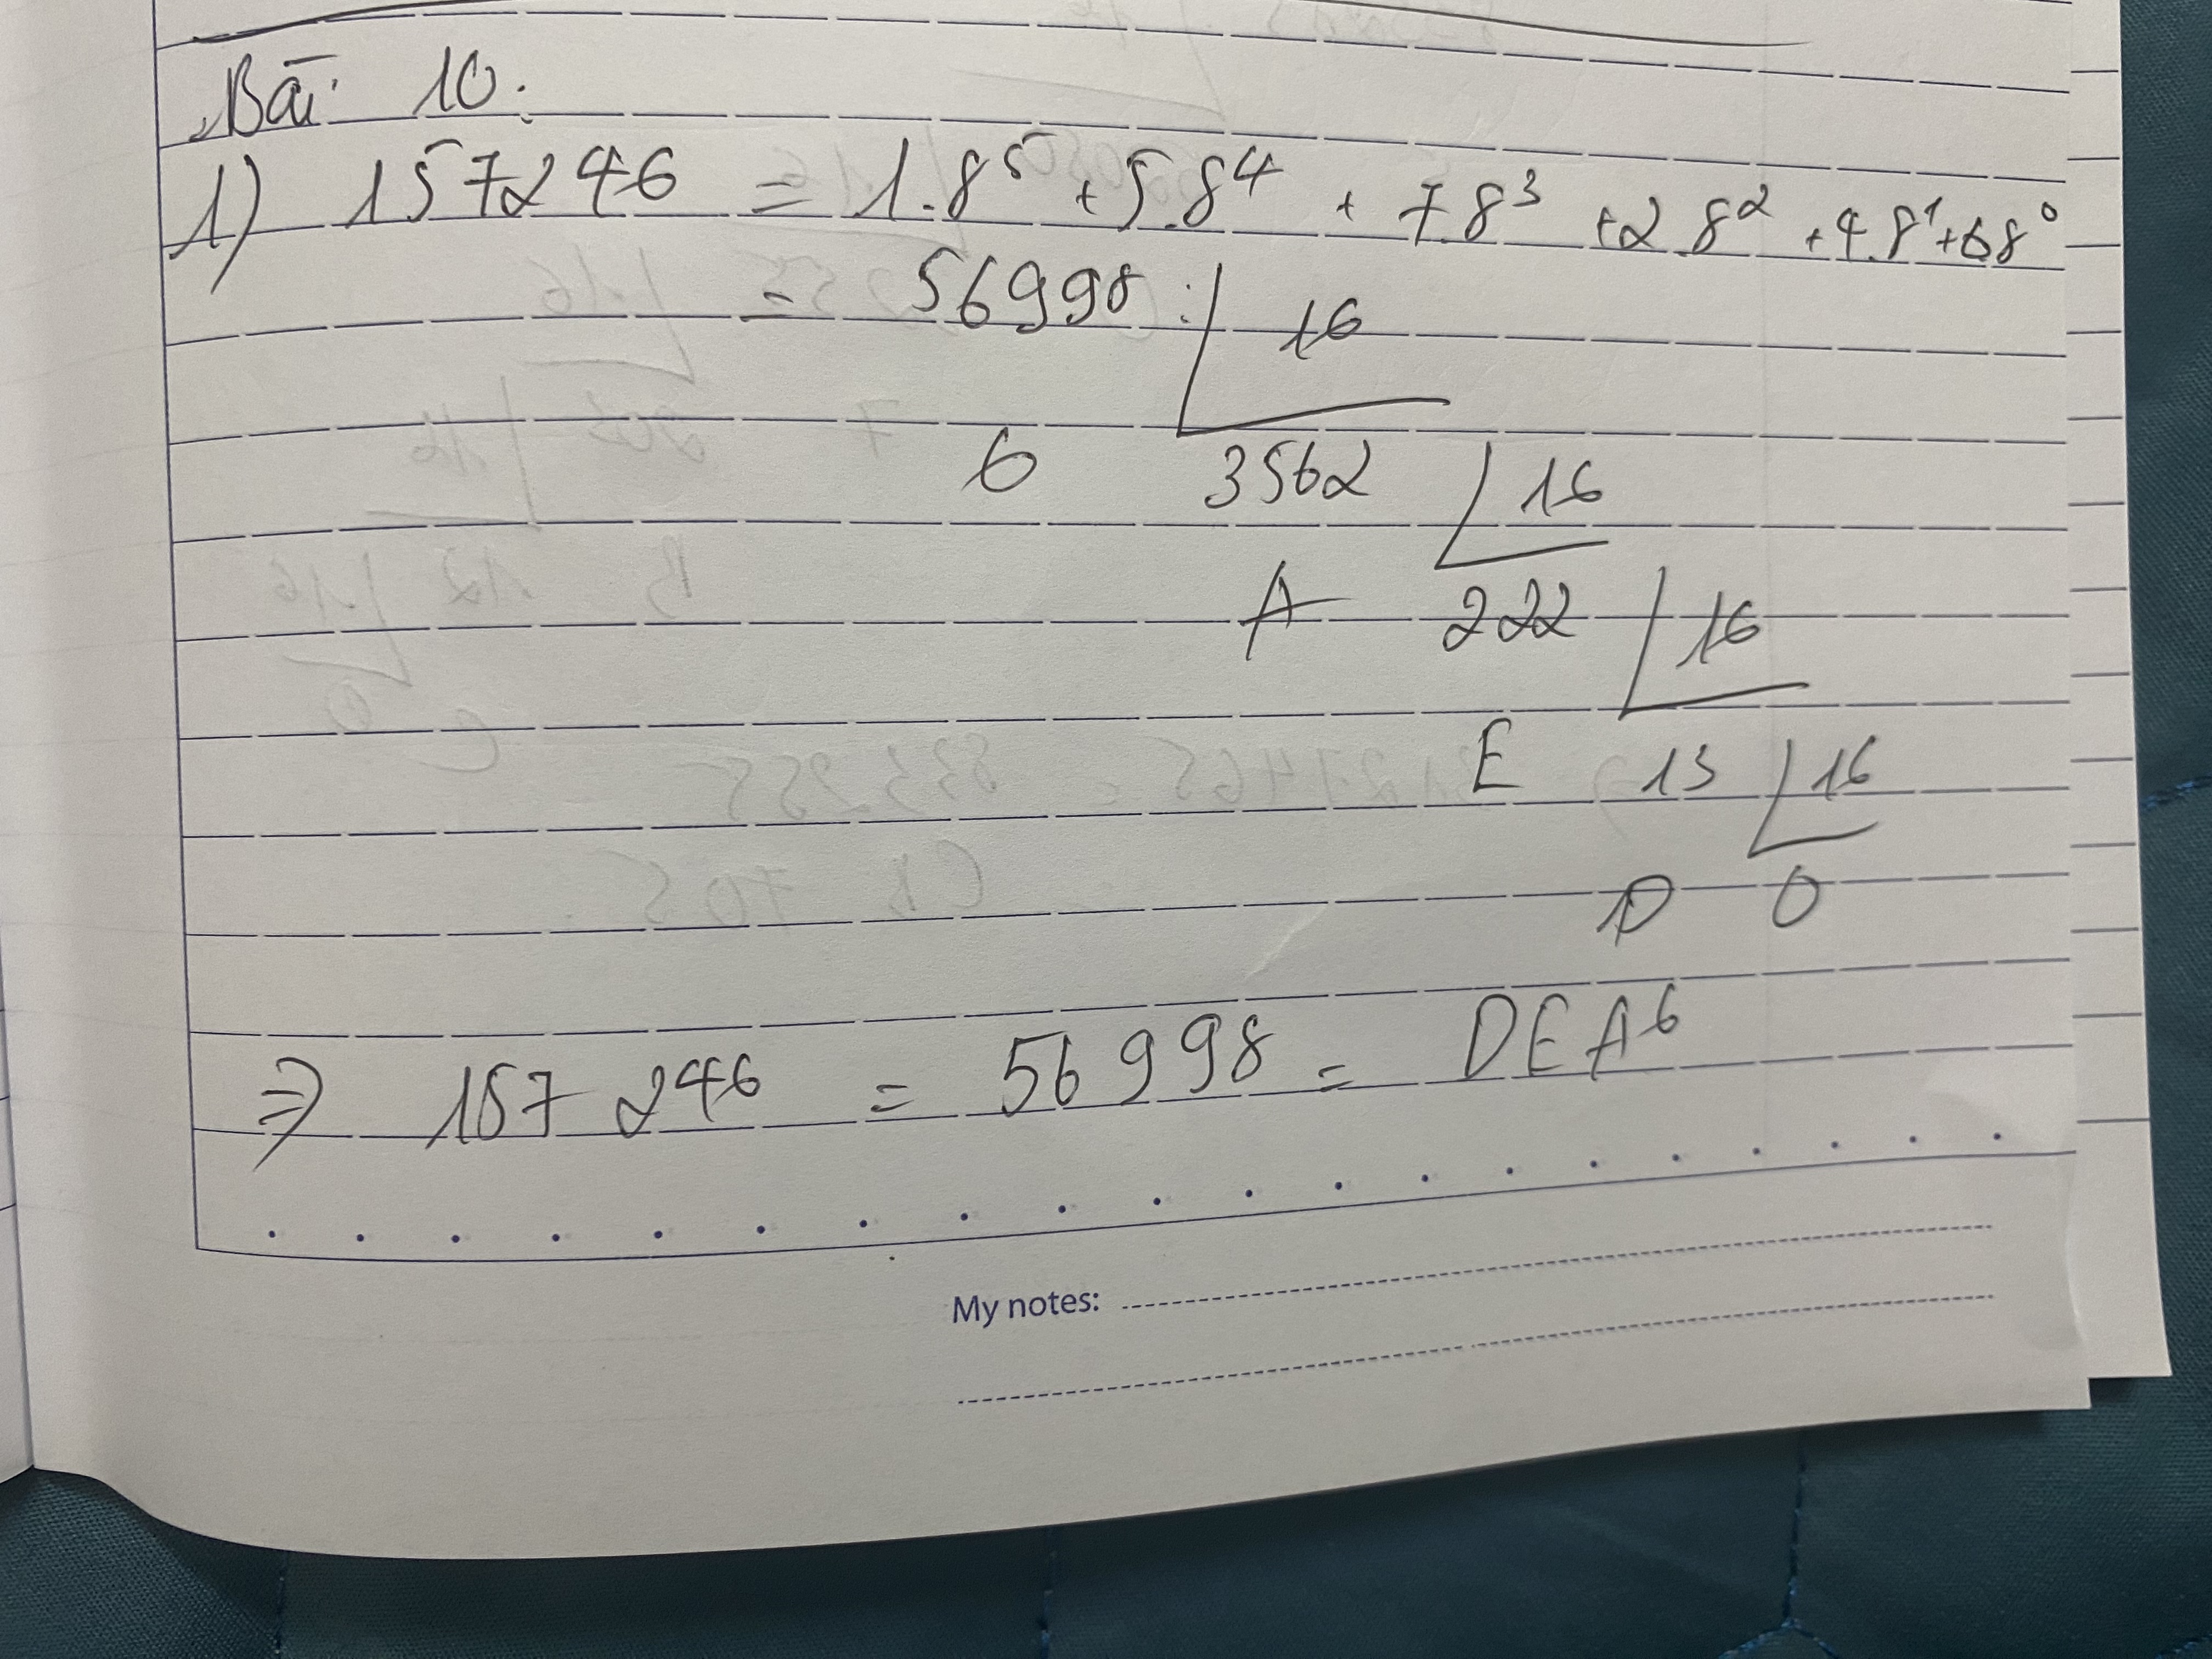 Bài 10.
1) 157246 = 1.8⁵ + 5.8⁴ + 7.8³ +2 8² + 4.8¹ + 6 8⁰
= 56998 : 16
6 3562 16
A 222 16
E 13 16
D 0
=> 157246 = 56998 = DEA6
My notes: